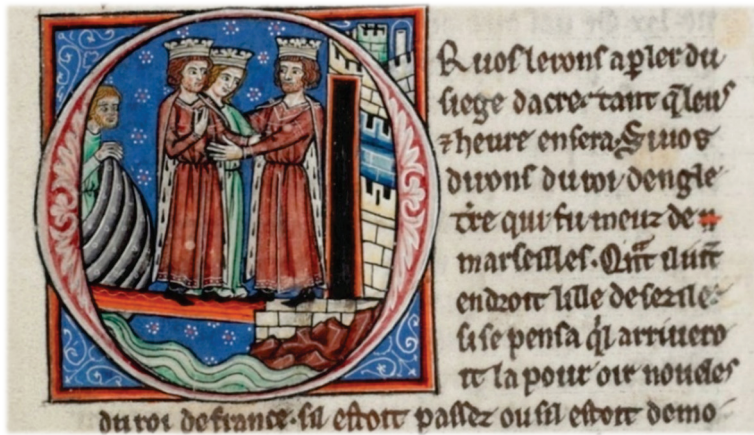 R uos lerons apler du
siege dacre. tant q̃ leus
⁊ heure en sera. Si uos
dirons du roi dengle
t̃re qui fu meuz de
marseilles. Qñt il uĩt
endroit lille de sezile.
si se pensa q̃l arriuero
it la pour oir noueles
du roi de france. sil estoit passez ou sil estoit demo-